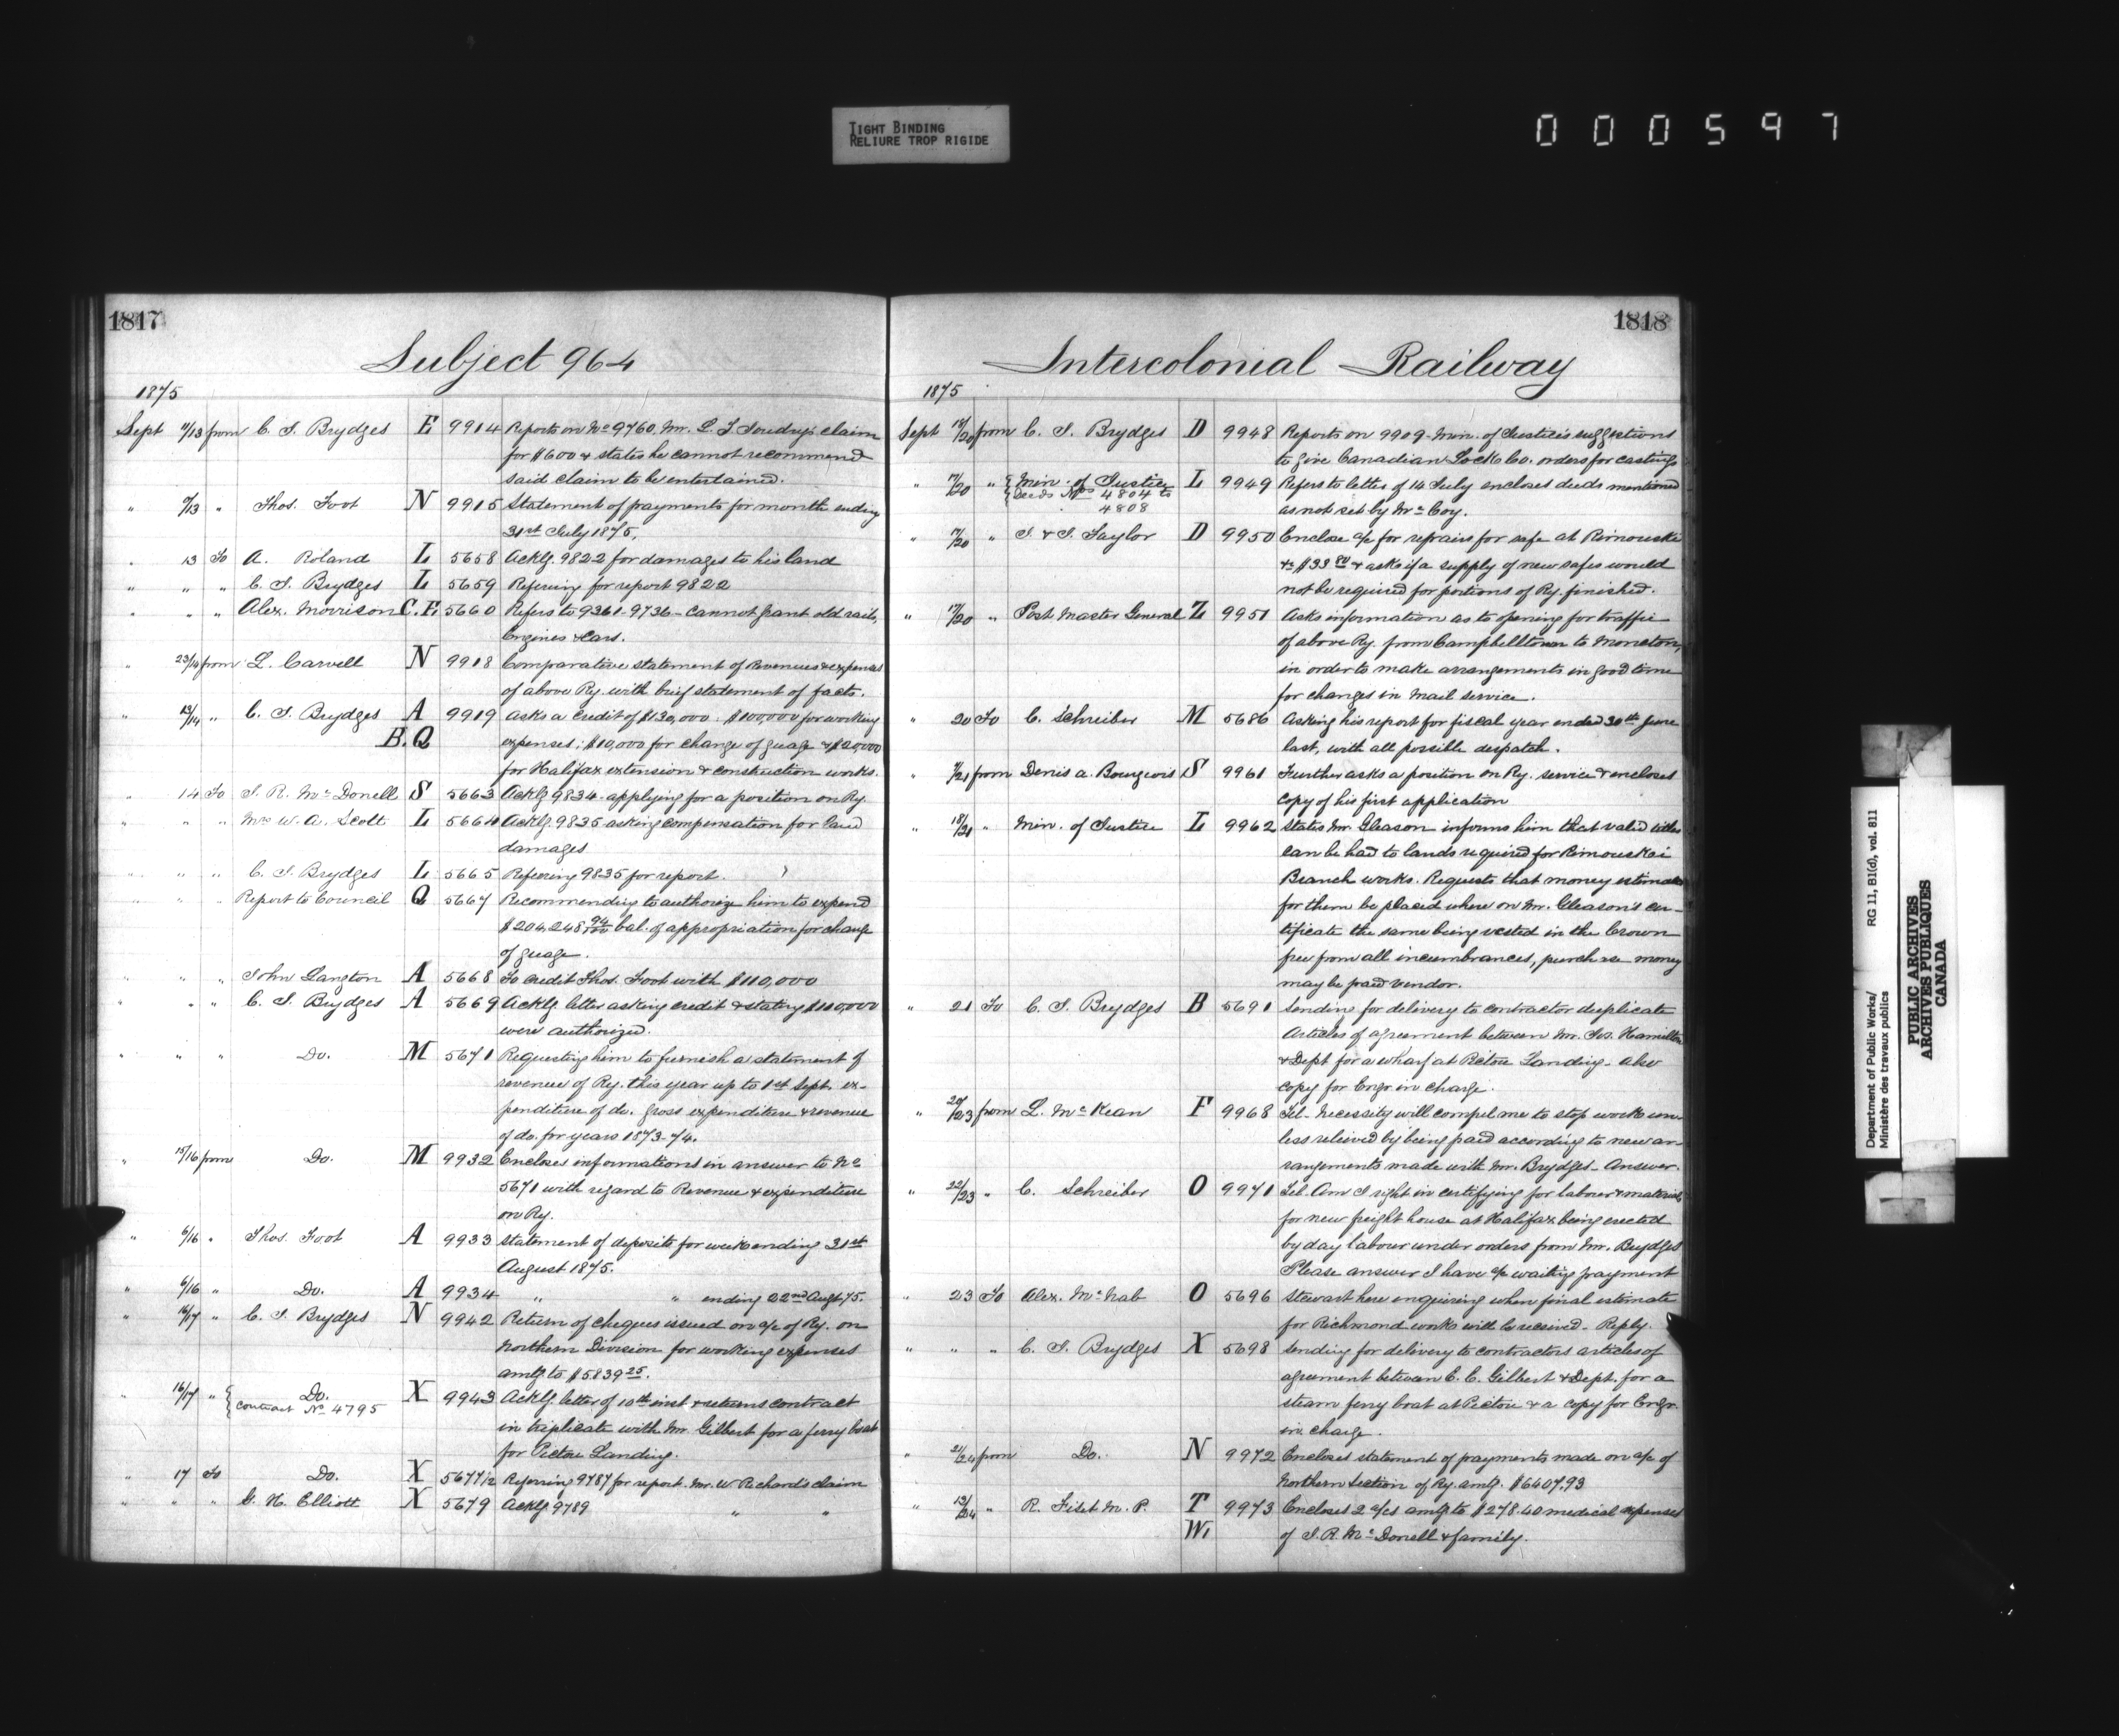 TIGHT BINDING
RELIURE TROP RIGIDE
000597
1817
Subject 964
1875
Sept 11/13 from C. J. Brydges E 9914 Reports on No 9760. Mr. L. J. claim
for $600 & states he cannot recommend
said claim to be entertained.
" 9/13 " Thos. Foot N 9915 Statement of payments for month ending
31st July 1875.
" 13 To A. Roland L 5658 Acklg. 9822 for damages to his land
" " " C. J. Brydges L 5659 Refering for report 9822
" " " Alex. Morrison C.E. 5660 Refers to 9361-9736 - cannot grant old rails,
Engines & Cars.
" 23/14 from L. Carvell N 9918 Comparative statement of Revenues & expenses
of above Ry. with brief statement of facts.
" 13/14 " C. J. Brydges A 9919 Asks a Credit of $130,000. $100,000 for working
B. Q expenses; $10,000 for change of guage & $20,000
for Halifax extension & construction works.
" 14 To J. R. McDonell S 5663 Acklg 9834 applying for a position on Ry.
" " " Mrs W. A. Scott L 5664 Acklg. 9835 asking compensation for land
damages
" " " C. J. Brydges L 5665 Refering 9835 for report.
" " " Report to Council Q 5667 Recommending to authorize him to expend
$204,248 94/100 bal. of appropriation for change
of guage.
" " " John Langton A 5668 To credit Thos. Foot with $110,000
" " " C. J. Brydges A 5669 Acklg. letter asking credit & stating $110,000
were authorized.
" " " Do. M 5671 Requesting him to furnish a statement of
revenue of Ry. this year up to 1st Sept. ex-
penditure of do. gross expenditure & revenue
of do. for years 1873-74.
" 15/16 from Do. M 9932 Encloses informations in answer to No
5671 with regard to Revenue & expenditure
on Ry.
" 6/16 " Thos. Foot A 9933 Statement of deposits for week ending 31st
August 1875.
" 6/16 " Do. A 9934 " " ending 22nd Augt 75.
" 16/17 " C. J. Brydges N 9942 Return of cheques issued on a/c of Ry. on
Northern Division for working expenses
amtg to $5839 25.
" 16/17 " Do. X 9943 Acklg. letter of 10th inst. & returns contract
Contract No 4795
in triplicate with Mr. Gilbert for a ferry boat
for Pictou Landing.
" 17 To Do. X 5677 1/2 Referring 9787 for report Mr. W. Richard's claim
" " " G. H. Elliott X 5679 Acklg 9789 " "
1818
Intercolonial Railway
1875
Sept 18/20 from C. J. Brydges D 9948 Reports on 9909 - Min. of Justice's suggestions
to give Canadian Lock Co. orders for castings
" 17/20 " Min. of Justice L 9949 Refers to letter of 14 July encloses deeds mentioned
Deeds Nos 4804 to
4808
as not set by McCoy.
" 17/20 " J. & J. Taylor D 9950 Enclose a/c for repairs for safe at Rimouski
$33 80 & asks if a supply of new safes would
not be required for portions of Ry. finished.
" 17/20 " Post Master General Z 9951 Asks information as to opening for traffic
of above Ry. from Campbelltown to Moncton,
in order to make arrangements in good time
for changes in Mail service.
" 20 To C. Schreiber M 5686 Asking his report for fiscal year ended 30th June
last, with all possible despatch.
" 7/21 from Denis A. Bourgeois S 9961 Further asks a position on Ry. service & encloses
copy of his first application
" 18/21 " Min. of Justice L 9962 States Mr. Gleason informs him that valid titles
can be had to lands required for Rimouski
Branch works. Requests that money estimated
for them be placed where on Mr. Gleason's cer-
tificate the same being vested in the Crown
free from all incumbrances, purchase money
may be paid vendor.
" 21 To C. J. Brydges B 5691 Sending for delivery to contractor duplicate
Articles of agreement between Mr. Jos. Hamilton
& Dept. for a wharf at Pictou Landing - also
copy for Engr. in charge.
" 20/23 from L. McKean F 9968 Tel. Necessity will compel me to stop work un-
less relieved by being paid according to new ar-
rangements made with Mr. Brydges - Answer.
" 22/23 " C. Schreiber O 9971 Tel. Am I right in certifying for labour & materials
for new freight house at Halifax being erected
by day labour under orders from Mr. Brydges
Please answer I have a/c waiting payment
" 23 To Alex. McNab O 5696 Stewart here enquiring when final estimate
for Richmond works will be received - Reply.
" " " C. J. Brydges X 5698 Sending for delivery to contractors articles of
agreement between E. C. Gilbert & Dept. for a
steam ferry boat at Pictou & a copy for Engr.
in charge.
" 21/24 from Do. N 9972 Encloses statement of payments made on a/c of
Northern Section of Ry. amtg. $6407.93
" 13/24 " R. Fiset M. P. T 9973 Encloses 2 a/cs amtg to $278.40 medical expenses
W. of J. R. McDonell & family.
Department of Public Works/
Ministère des travaux publics
RG 11, B1(d), vol. 811
PUBLIC ARCHIVES
ARCHIVES PUBLIQUES
CANADA